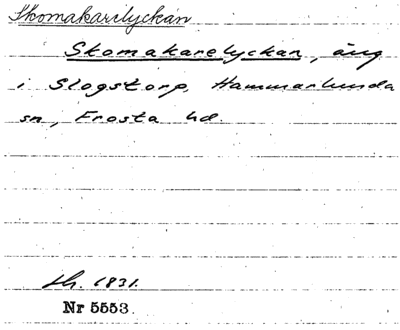 Skomakarelyckan
Skomakarelyckan, äng
i Slogstorp, Hammarlunda
sn, Frosta hd.
1831.
Nr 5553.